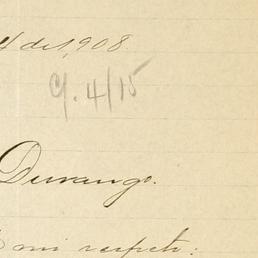 4 de 1,908.
C. 4/15
Durango.
mi respeto: